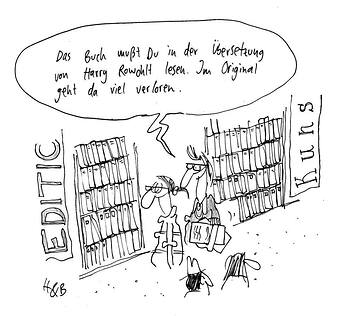 Das Buch mußt Du in der Übersetzung
von Harry Rowohlt lesen. Im Original
geht da viel verloren.
EDITIC
Kuns
H&B